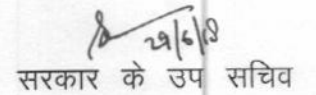 29/6/18
सरकार के उप सचिव